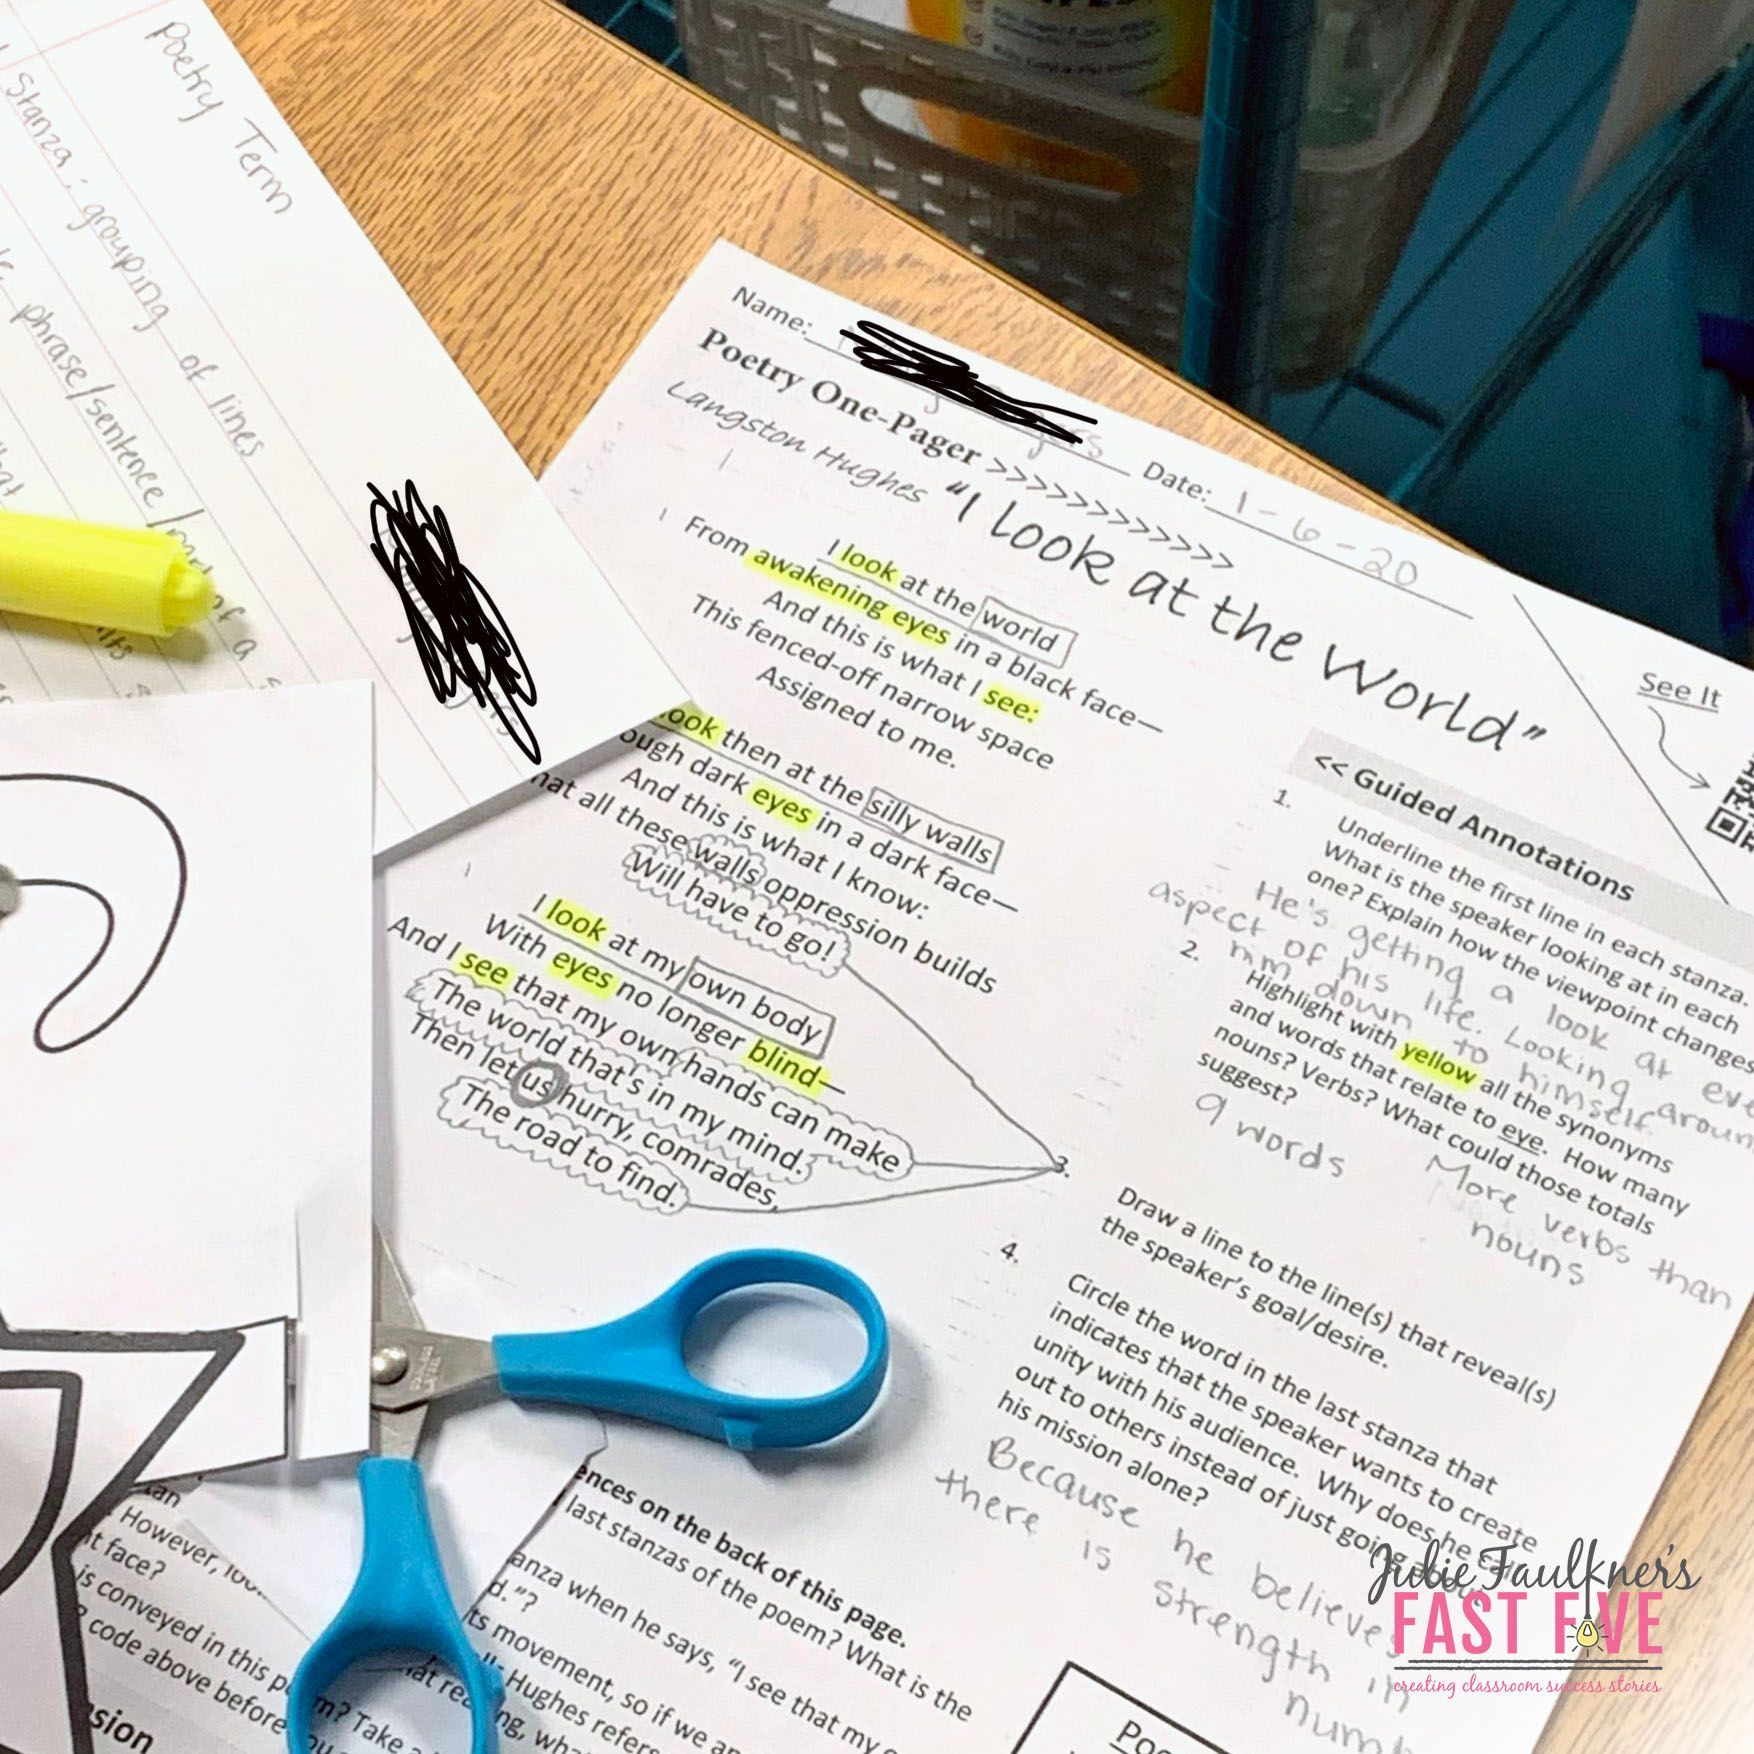 Poetry Term
Stanza: grouping of lines
phrase/sentence/part of a
Name:
Date: 1-6-20
Poetry One-Pager >>>>>>>>>>>>>
Langston Hughes "I Look at the World"
I look at the world
From awakening eyes in a black face—
And this is what I see:
This fenced-off narrow space
Assigned to me.
look then at the silly walls
ough dark eyes in a dark face—
And this is what I know:
hat all these walls oppression builds
Will have to go!
I look at my own body
With eyes no longer blind—
And I see that my own hands can make
The world that's in my mind.
Then let us hurry, comrades,
The road to find.
See It
<< Guided Annotations
1. Underline the first line in each stanza.
What is the speaker looking at in each
one? Explain how the viewpoint changes
He's getting a look at eve
aspect of his life. Looking aroun
him down to himself.
2. Highlight with yellow all the synonyms
and words that relate to eye. How many
nouns? Verbs? What could those totals
suggest?
9 words
More verbs than
nouns
3. Draw a line to the line(s) that reveal(s)
the speaker's goal/desire.
4. Circle the word in the last stanza that
indicates that the speaker wants to create
unity with his audience. Why does he call
out to others instead of just going
his mission alone?
Because he believes
there is strength in
num
ences on the back of this page.
last stanzas of the poem? What is the
anza when he says, "I see that my o
d."?
ts movement, so if we an
Hughes refers
However,
nt face?
is conveyed in this poem? Take a
code above before you
sion
Poe
Julie Faulkner's
FAST FIVE
creating classroom success stories